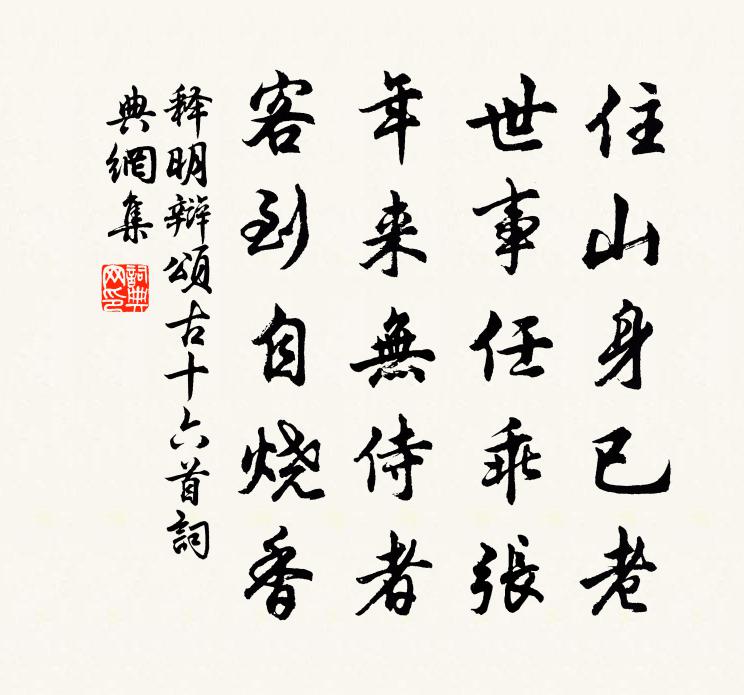 住山身已老
世事任乖張
年来無侍者
客到自烧香
释明辯頌古十六首詞
典網集
詞典
网印